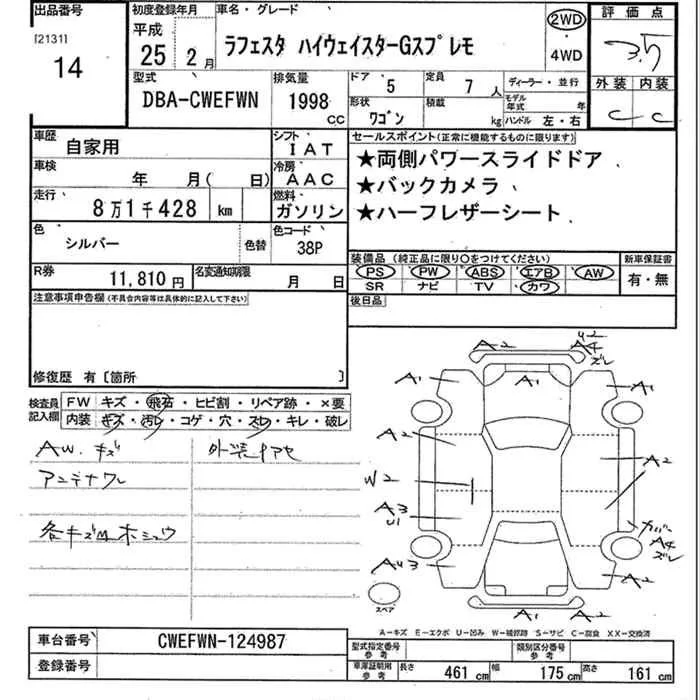 出品番号
[2131]
14
初度登録年月
平成
25 2月
車名・グレード
ラフェスタ ハイウェイスターGスプレモ
2WD
4WD
評価点
3.5
外装 内装
C C
型式
DBA-CWEFWN
排気量
1998 CC
ドア 5
定員 7人
形状 ワゴン
積載 kg
ディーラー・並行
モデル年式 年
ハンドル 左・右
車歴 自家用
シフト IAT
車検 年 月( 日)
冷房 AAC
走行 8万1千428 km
燃料 ガソリン
色 シルバー 色替
色コード 38P
R券 11,810円
名変通知期限 月 日
セールスポイント(正常に機能するものに限ります)
★両側パワースライドドア
★バックカメラ
★ハーフレザーシート
装備品(純正品に限り○をつけてください)
PS PW ABS エアB AW
SR ナビ TV カワ
新車保証書
有・無
後日品
注意事項申告欄(不具合内容等は具体的に記入して下さい)
修復歴 有〔箇所 〕
検査員記入欄
FW キズ・飛石・ヒビ割・リペア跡・×要
内装 キズ・汚レ・コゲ・穴・スレ・キレ・破レ
AW.キズ
外装ナマセ
アンテナワレ
各キズMホシュウ
A2
U2
A4
ズレ
A1 A1 A1
A2 A2
W2
A3
U1
カバー
A4
ズレ
AU3 A2
A1 A2
スペア
A-キズ E-エクボ U-凹み W-補修跡 S-サビ C-腐食 XX-交換済
車台番号 CWEFWN-124987
登録番号
型式指定番号 参考
類別区分番号 参考
車庫証明用 参考
長さ 461 cm 幅 175 cm 高さ 161 cm